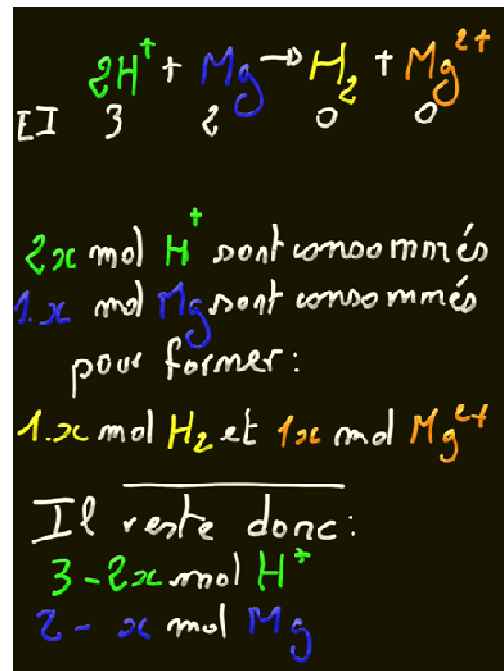 2H⁺ + Mg → H₂ + Mg²⁺
EI 3 2 0 0
2x mol H⁺ sont consommés
1.x mol Mg sont consommés
pour former :
1.x mol H₂ et 1x mol Mg²⁺
Il reste donc :
3 - 2x mol H⁺
2 - x mol Mg